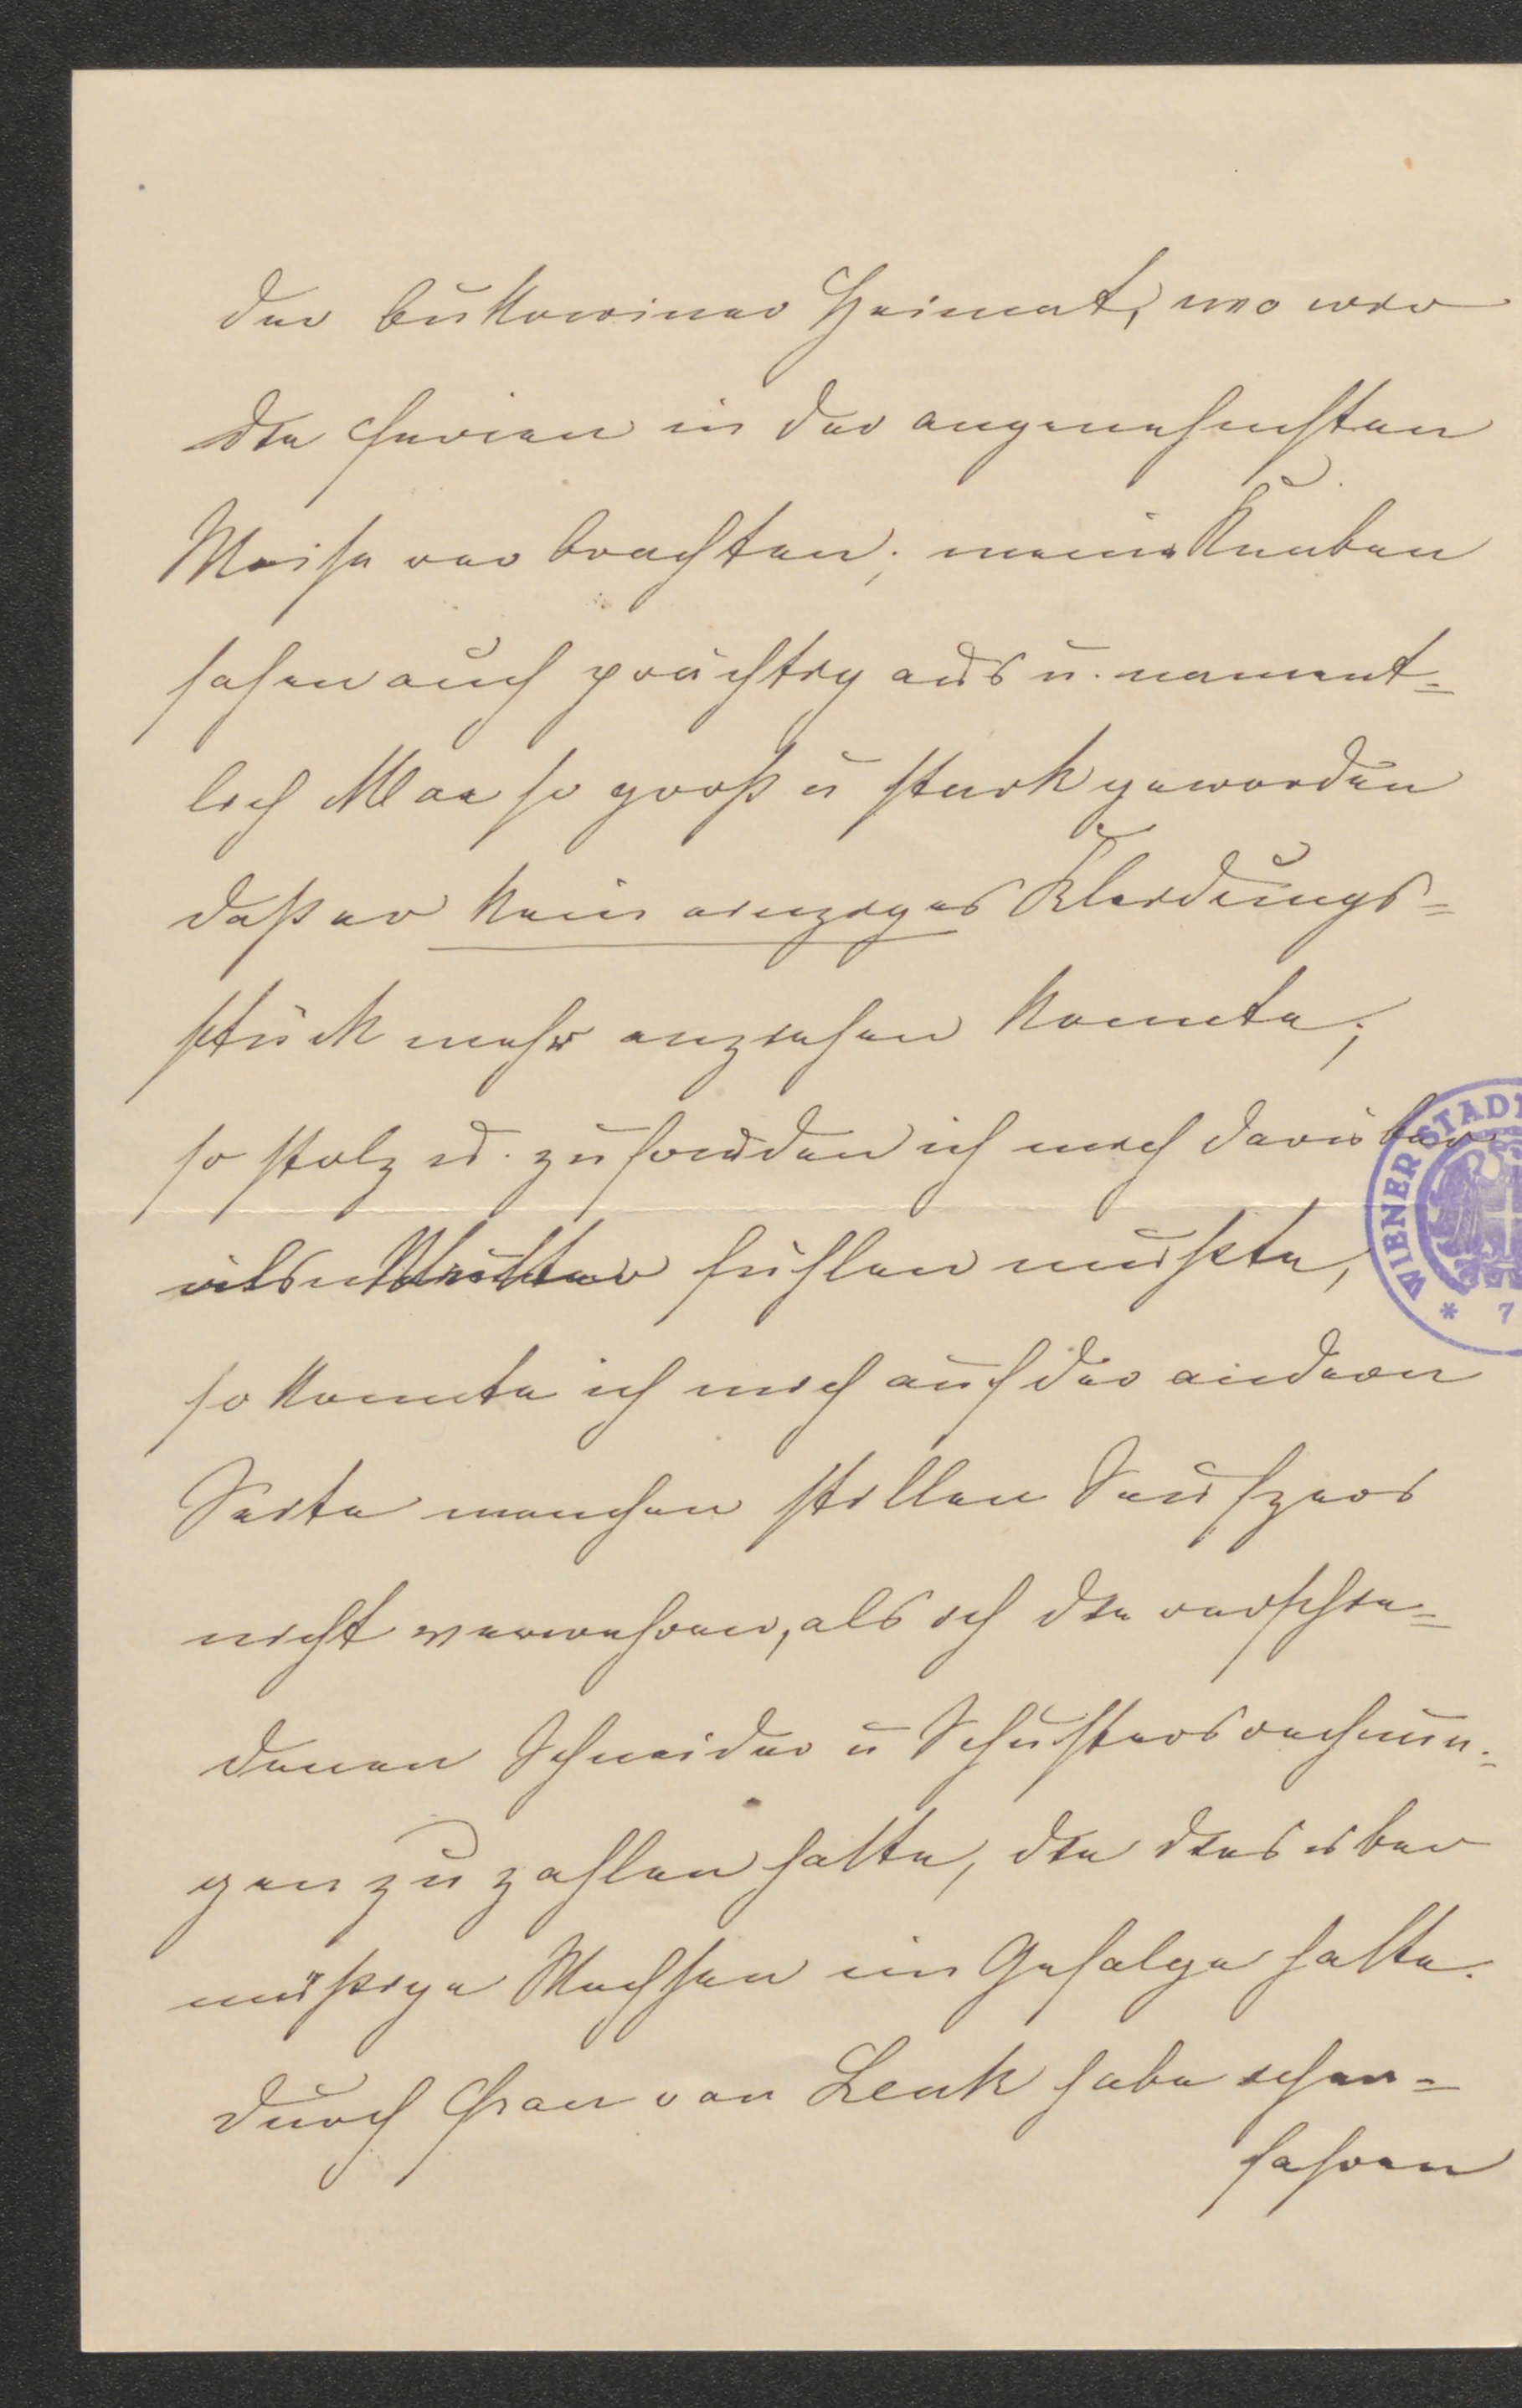 der bukowiner Heimat, wo wir
die Ferien in der angenehmsten
Weise verbrachten; meine Knaben
sahen auch prächtig aus u. nament-
lich Max so groß u stark geworden
daß er kein einziges Kleidungs-
stück mehr anziehen konnte;
so stolz u. zufrieden ich mich darüber
als Mutter fühlen mußte,
so konnte ich mich auf der andern
Seite manchen stillen Seufzers
nicht verwehren, als ich die verschie-
denen Schneider u Schustersrechnun-
gen zu zahlen hatte, die dies über
mäßige Wachsen im Gefolge hatte.
Durch Frau von Lenk habe ich er-
fahren
WIENER STAD
* 7